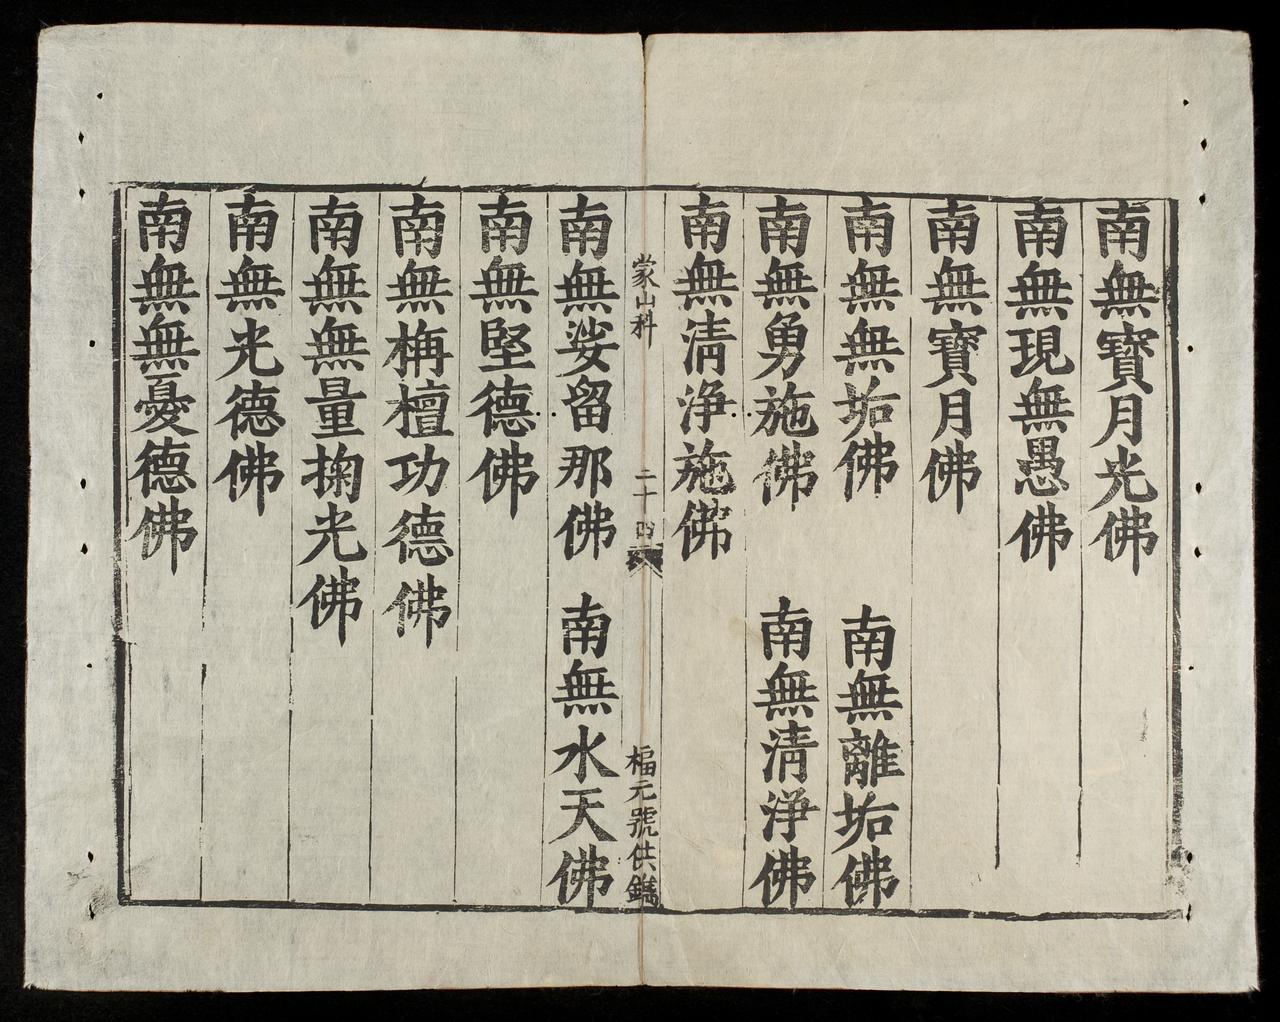 南無寶月光佛
南無現無愚佛
南無寶月佛
南無無垢佛 南無離垢佛
南無勇施佛 南無清淨佛
南無清淨施佛
蒙山科 二十四 福元號供鐫
南無娑留那佛 南無水天佛
南無堅德佛
南無栴檀功德佛
南無無量掬光佛
南無光德佛
南無無憂德佛